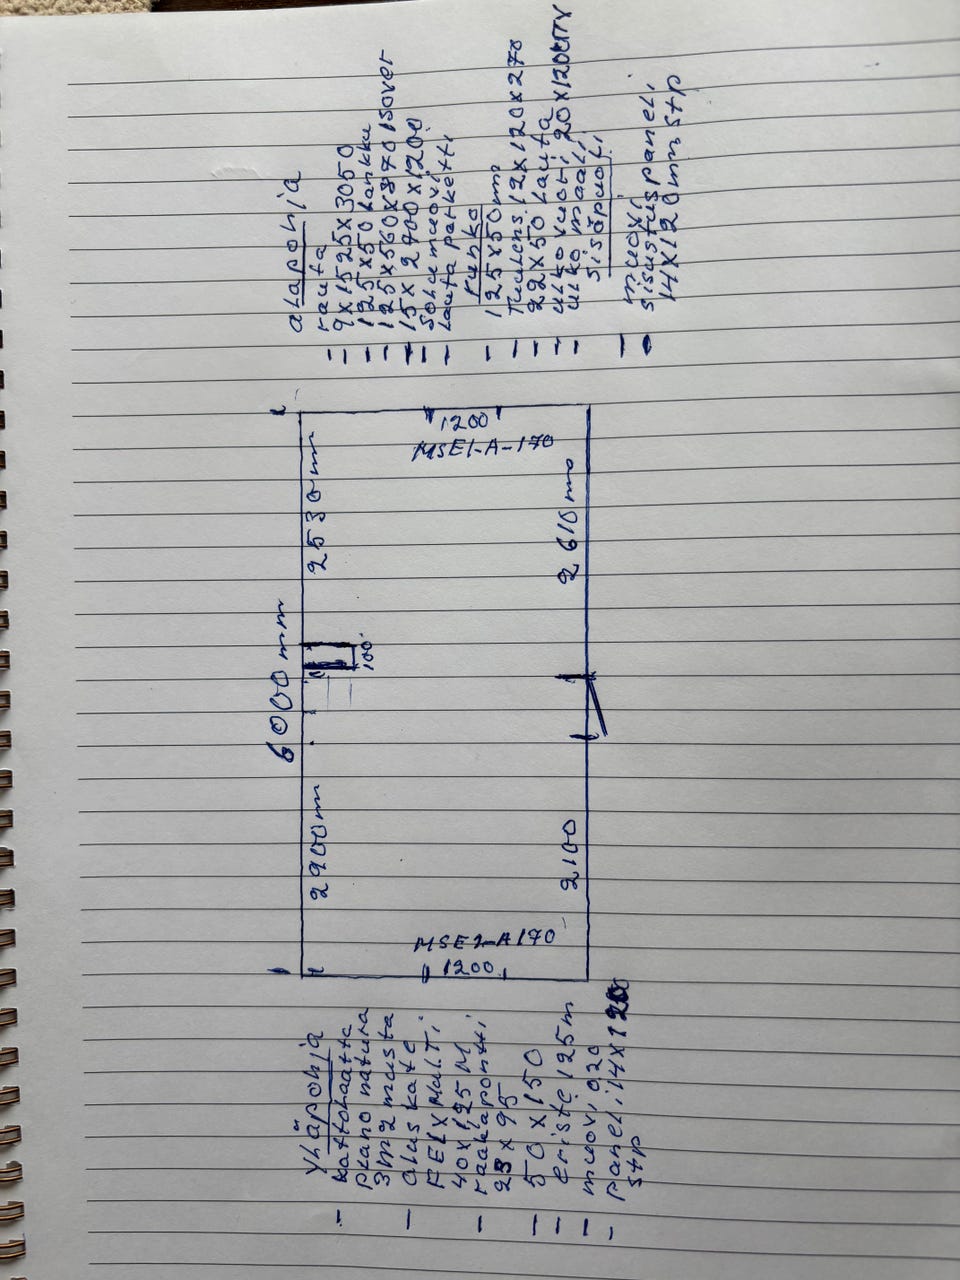 yläpohja
- kattohaatta
plano natura
3m2 musta
- alus kate
FELX MULTi
40x1,25 M
- raakapontti
23 x 95
- 50 x 150
- eriste 125m
- muovi 0,20
- paneli 14x120
stp
6000 mm
2900 mm
2530 mm
100
MSE1-A170
1200
1200
MSE1-A-170
2100
2610 mm
alapohja
- rauta
9x1525x3050
- 125x50 lankku
- 125x560x870 isover
- 15x2700x1200
- solumuovi
- lauta parketti
runko
- 125x50 mm
- Tuulens. 12x120x270
- 22x50 lauta
- ulko vuori 20x120UTV
- ulko maali
sisäpuoli
- muovi
- sisustuspaneli
14x120mm stp